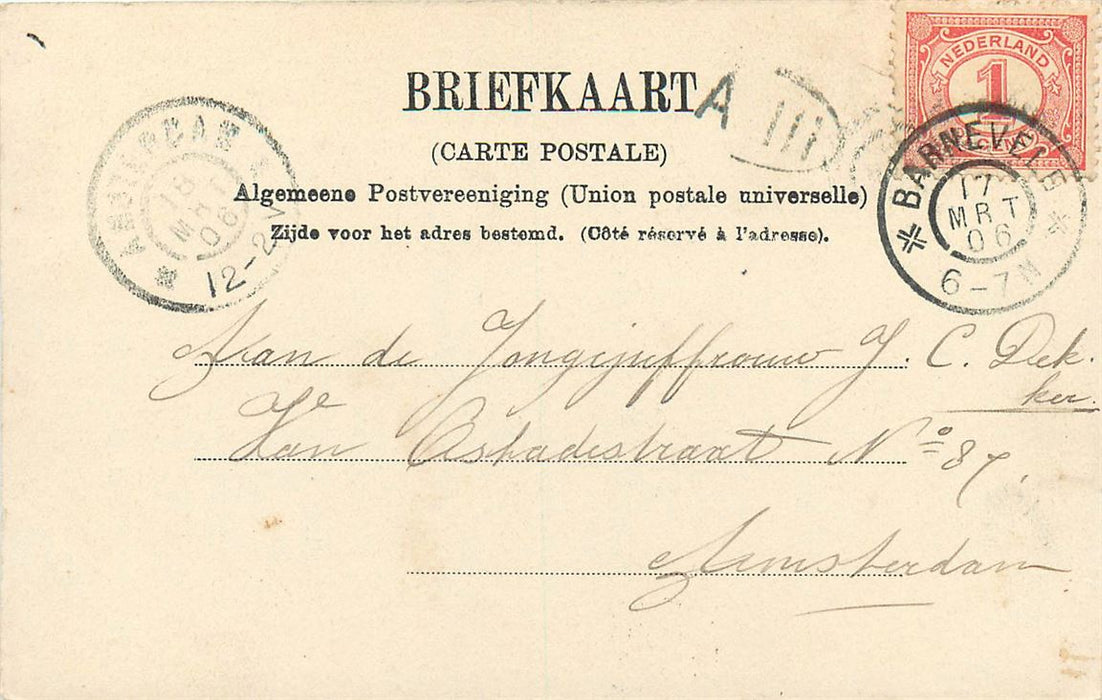 NEDERLAND
1
BRIEFKAART
A III
(CARTE POSTALE)
Algemeene Postvereeniging (Union postale universelle)
Zijde voor het adres bestemd. (Côté réservé à l'adresse).
AMSTERDAM
18
MRT
06
12-2V
BARNEVELD
17
MRT
06
6-7N
Aan de Jongejuffrouw J. C. Dek-
ker.
No 87.
Amsterdam